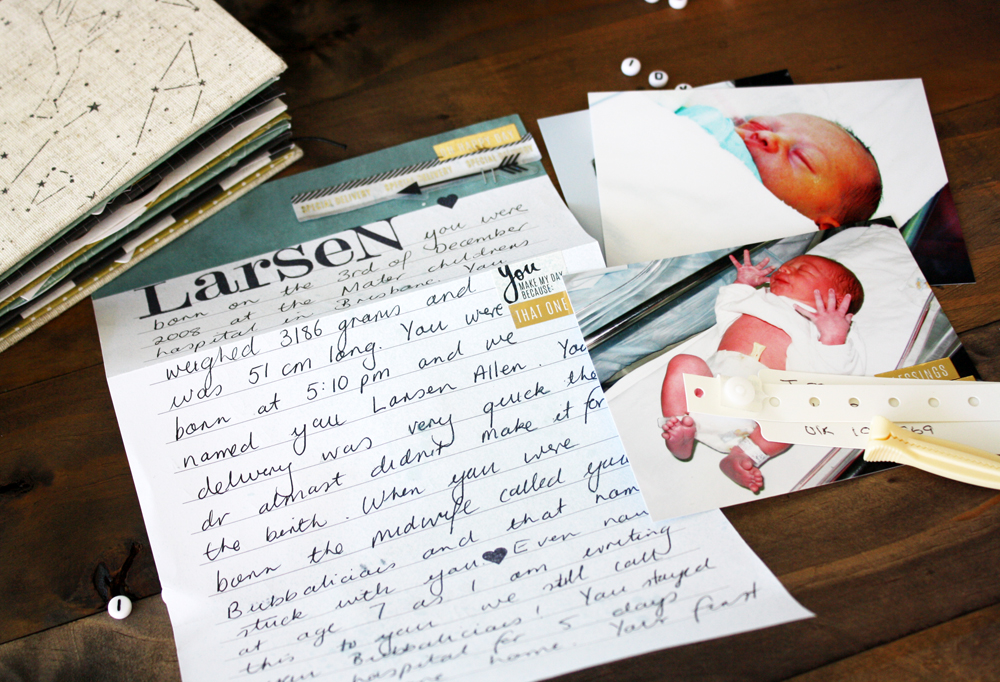 SPECIAL DELIVERY SPECIAL DELIVERY SPECIAL
Larsen you were
born on the 3rd of December
2008 at the Mater childrens
hospital in Brisbane. You
weighed 3186 grams and
was 51 cm long. You were
born at 5:10 pm and we
named you Larsen Allen. You
delivery was very quick the
dr almost didn't make it for
the birth. When you were
born the midwife called you
Bubbaliciais and that nam
stuck with you Even now
at age 7 as I am writing
this to you we still call
you Bubbaliciais! You stayed
hospital for 5 days
home. Your first
you
MAKE MY DAY
BECAUSE:
THAT ONE
BLESSINGS
UR
I
I